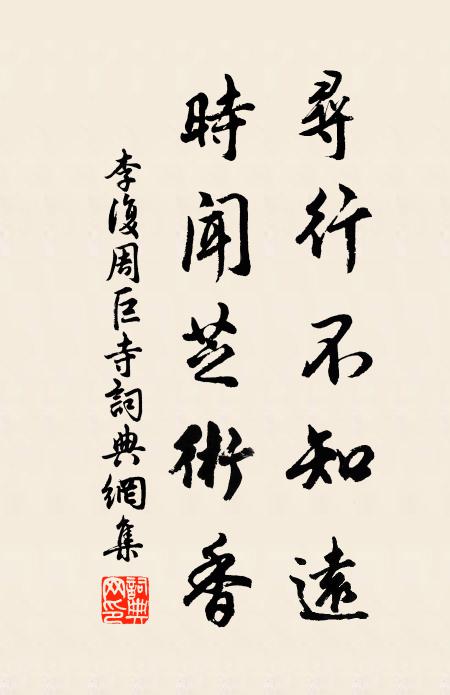 尋行不知遠
時聞芝術香
李復周巨寺詞典網集
詞典網印